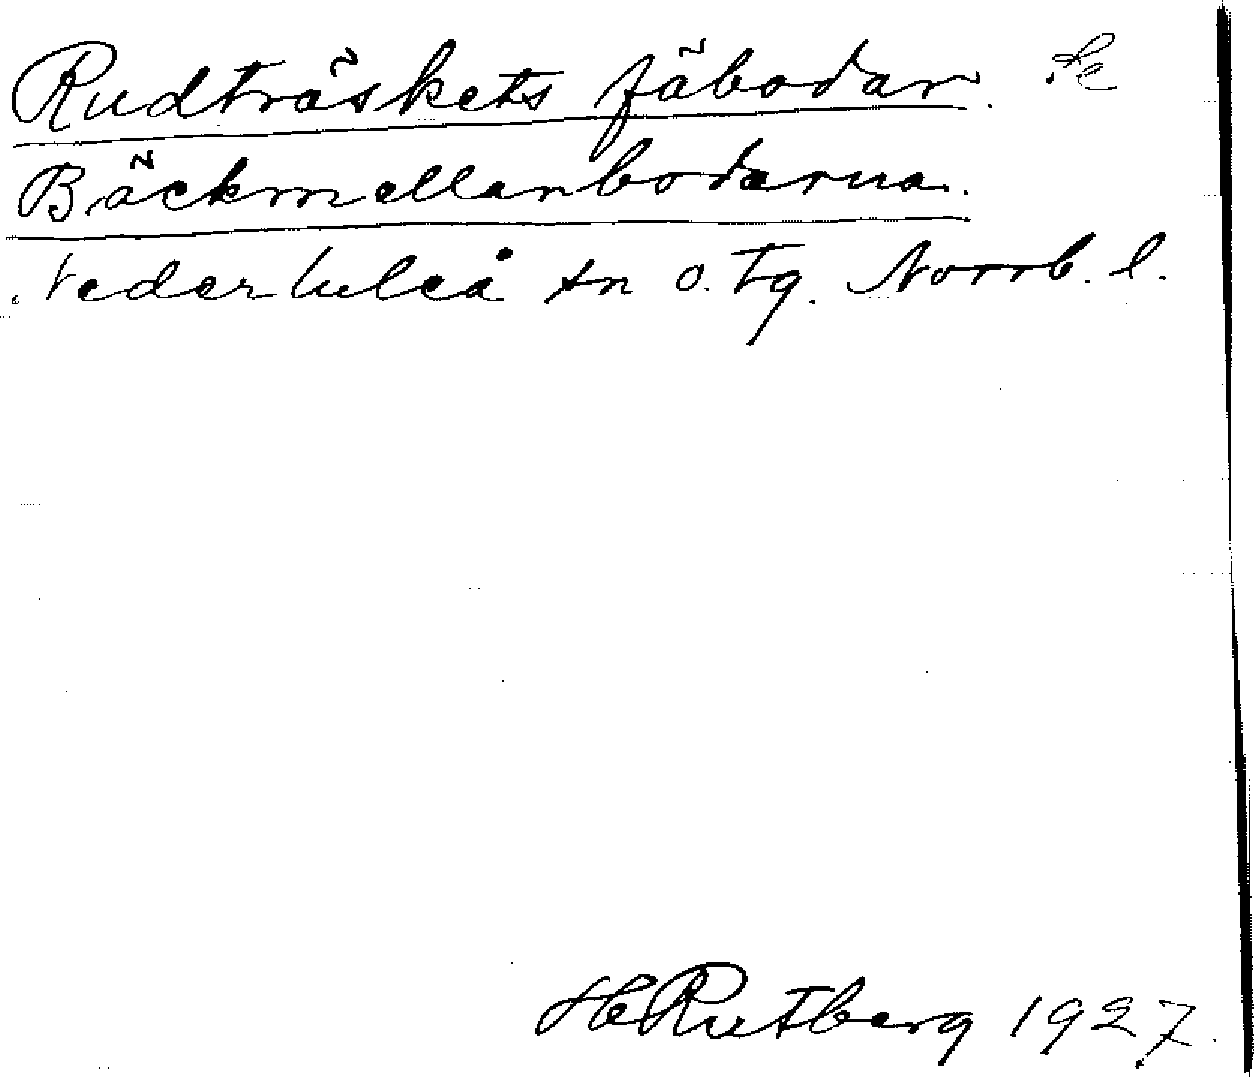 Rudträskets fäbodar. Se
Bäckmellanbodarna.
Nederluleå sn o. tg. Norrb. l.
H Rutberg 1927.